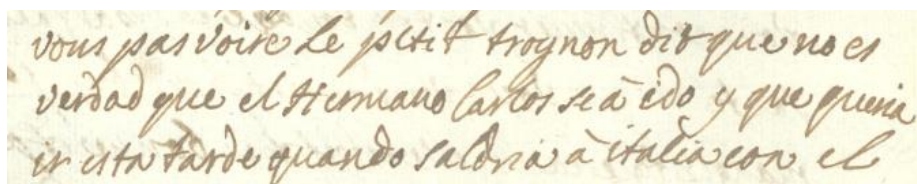 vous pas voire le petit trognon dit que no es
verdad que el Hermano Carlos se à edo y que queria
ir esta tarde quando saldria à italia con el